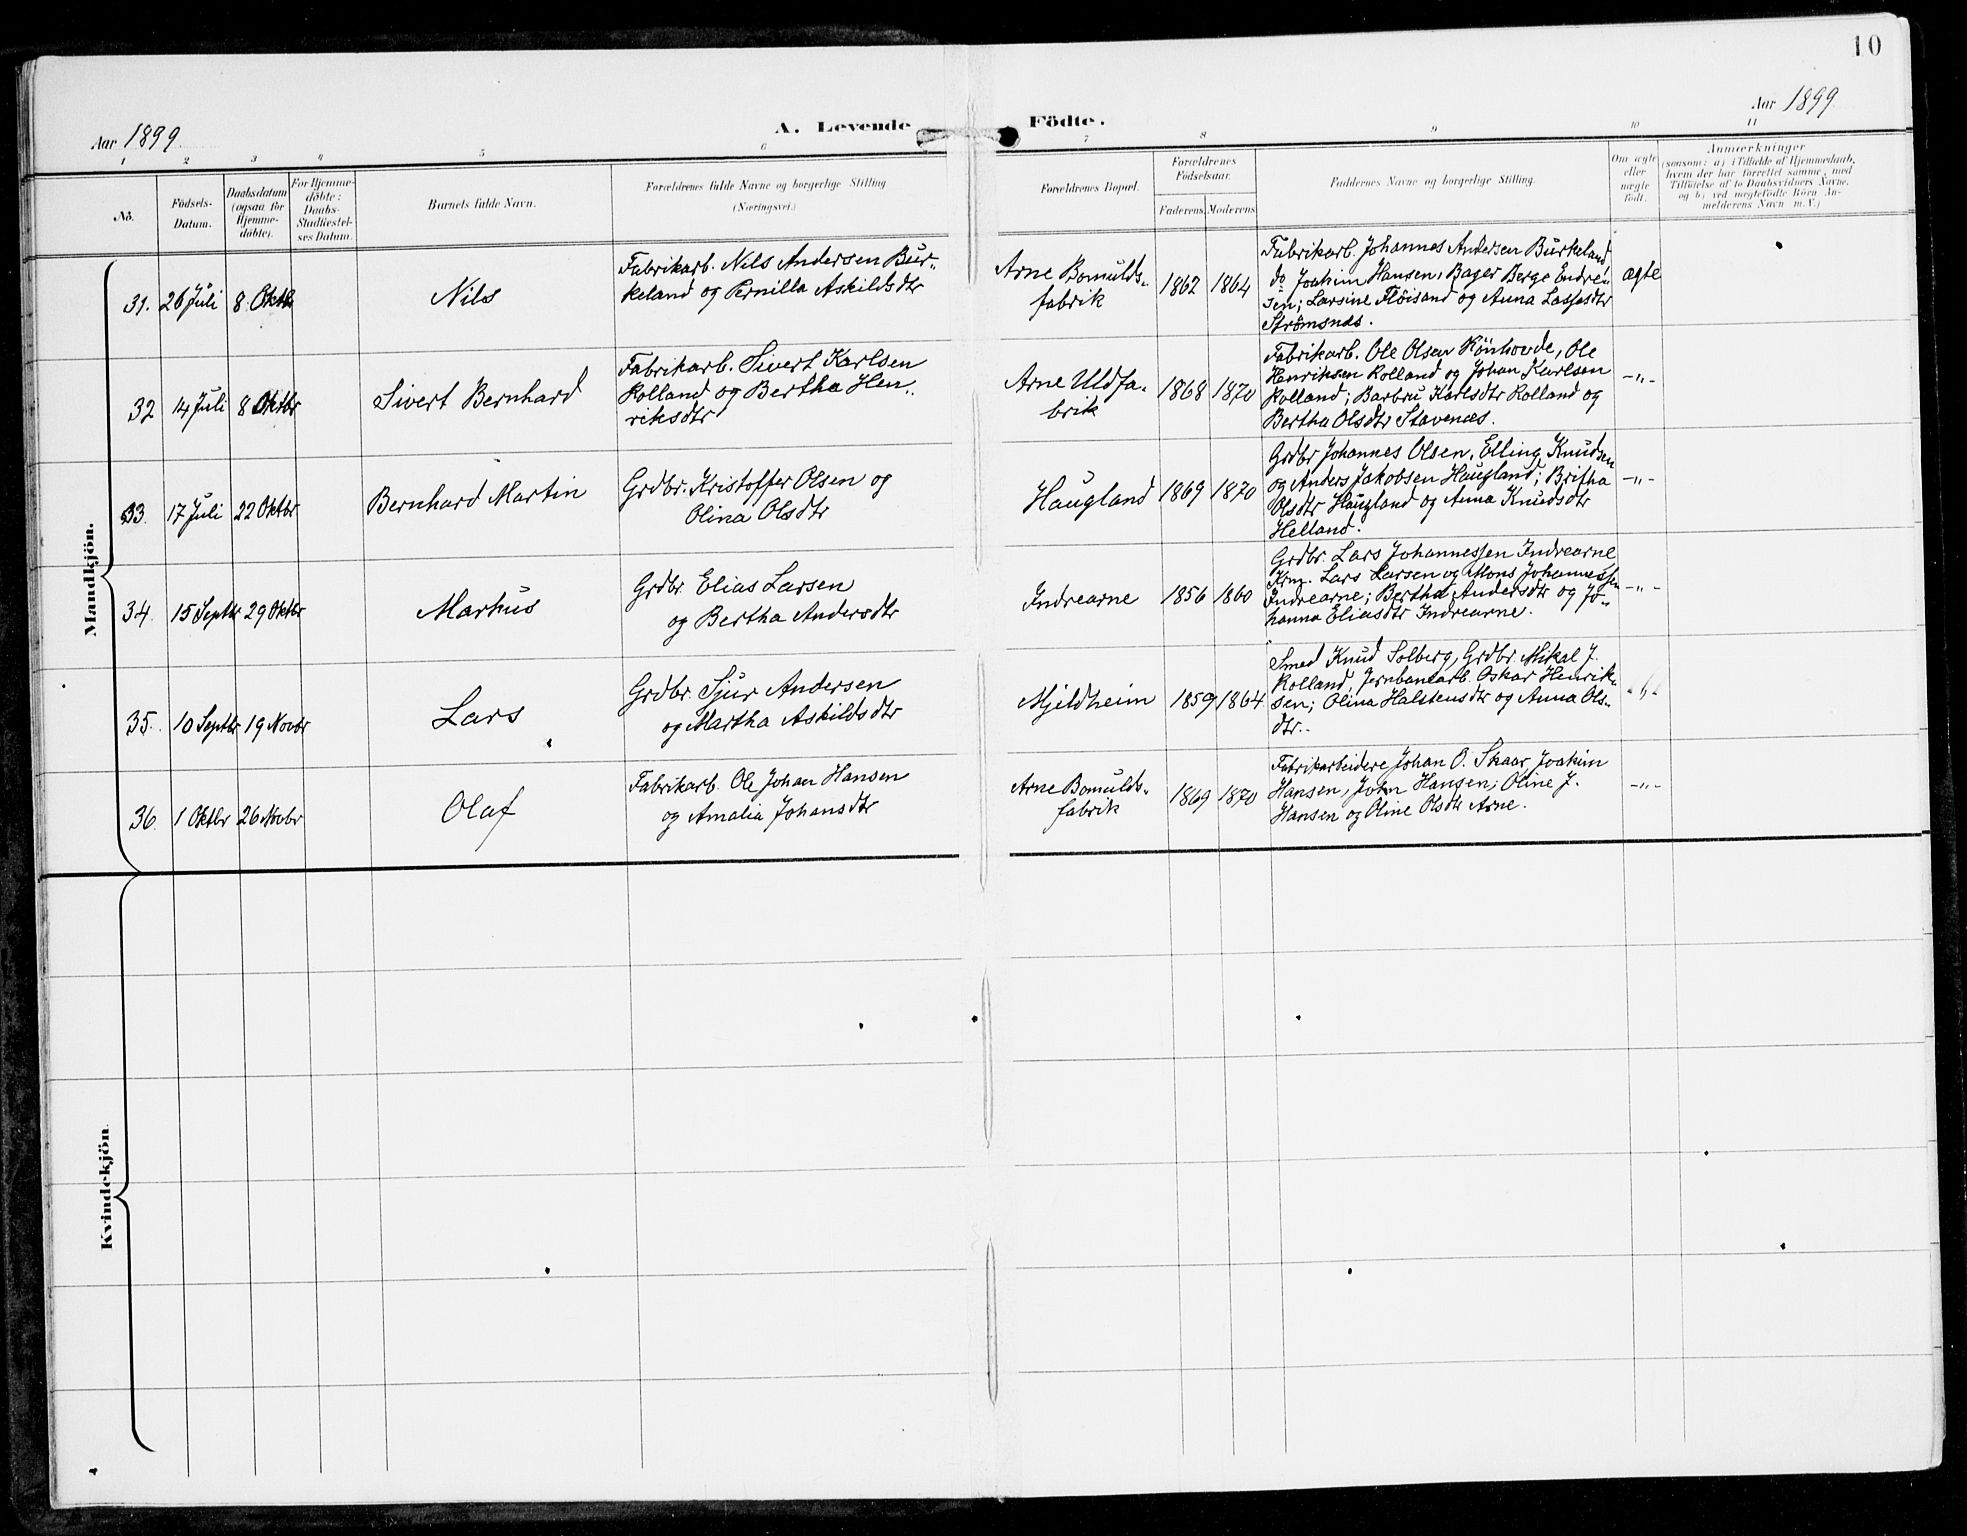 10
Aar 1899
A. Levende
Födte.
Aar 1899
1 2 3 4 5 6 7 8 9 10 11
No.
Födsels-
Datum.
Daabsdatum
(ogsaa for
Hjemme-
døbte).
For Hjemme-
döbte:
Daabs-
Stadfæstel-
ses Datum.
Barnets fulde Navn.
Forældrenes fulde Navne og borgerlige Stilling
(Næringsvei.)
Forældrenes Bopæl.
Forældrenes
Födselsaar.
Faderens. Moderens.
Faddernes Navne og borgerlige Stilling.
Om ægte
eller
uægte
født.
Anmærkninger
(saasom: a) i Tilfælde af Hjemmedaab,
hvem der har forrettet samme, med
Tilföielse af to Daabsvidners Navne,
og b) ved uægtefödte Börn An-
melderens Navn m. V.)
Mandkjön.
31. 26 Juli 8 Oktb
Nils
Fabrikarb. Nils Andersen Bur-
keland og Pernilla Askildsdtr
Arne Bomulds-
fabrik
1862 1864
Fabrikarb. Johannes Andersen Burkeland
do Joakim Hansen, Bager Berge Endre-
sen; Larsine Flöisand og Anna Lassesdtr
Strömsnes.
ægte
32 14 Juli 8 Oktbr
Sivert Bernhard
Fabrikarb. Sivert Karlsen
Rolland og Bertha Hen-
riksdtr
Arne Uldfa-
brik
1868 1870
Fabrikarb. Ole Olsen Rönhovde, Ole
Henriksen Rolland og Johan Karlsen
Rolland; Barbru Karlsdtr Rolland og
Bertha Olsdtr Stavenæs.
-"-
33. 17 Juli 22 Oktbr
Bernhard Martin
Grdbr. Kristoffer Olsen og
Olina Olsdtr
Haugland
1869 1870
Grdbr Johannes Olsen, Elling Knudsen
og Anders Jakobsen Haugland; Britha
Olsdtr Haugland og Anna Knudsdtr
Helland.
-"-
34. 15 Septbr 29 Oktbr
Markus
Grdbr. Elias Larsen
og Bertha Andersdtr
Indrearne
1856 1860
Grdbr. Lars Johannessen Indrearne
Krm. Lars Larsen og Mons Johannessen
Indrearne; Bertha Andersdtr og Jo-
hanna Eliasdtr Indrearne.
-"-
35. 10 Septbr 19 Novbr
Lars
Grdbr Sjur Andersen
og Martha Askildsdtr
Mjeldheim
1859 1864
Smed Knud Solberg, Grdbr. Mikal J.
Rolland, Jernbanearb. Oskar Henrik-
sen; Olina Halstensdtr og Anna Ols-
dtr.
-"-
36. 1 Oktbr 26 Novbr
Olaf
Fabrikarb. Ole Johan Hansen
og Amalia Johansdtr
Arne Bomulds-
fabrik
1869 1870
Fabrikarbeidere Johan O. Skaar, Joakim
Hansen, John Hansen; Oline J.
Hansen og Oline Olsdtr Arne.
-"-
Kvindekjön.